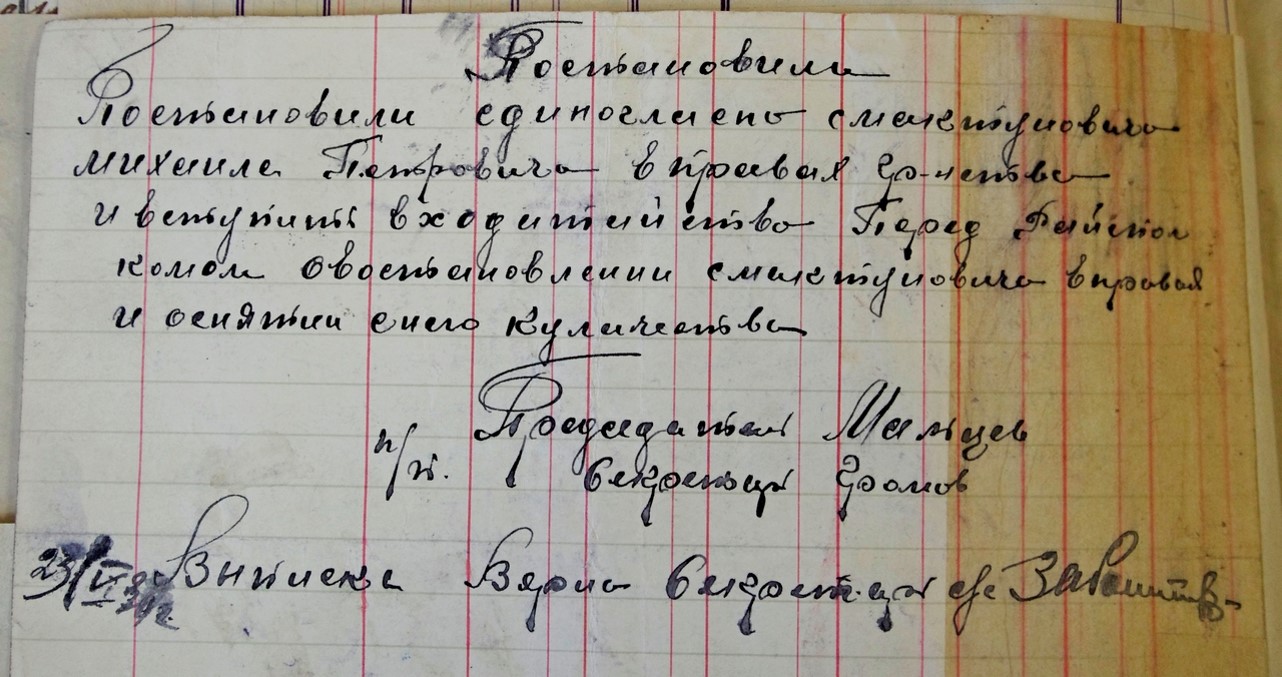 Постановили
Постановили единогласно смактуновича
михаила Петровича вправах гр-нства
и вступить входатайство Перед Райспол
комом овостановлении смактуновича вправах
и оснятии снего кулачества
Председатель Мальцев
п/п. Секретарь Громов
23/IV Выписка Верна Секретарь с/с